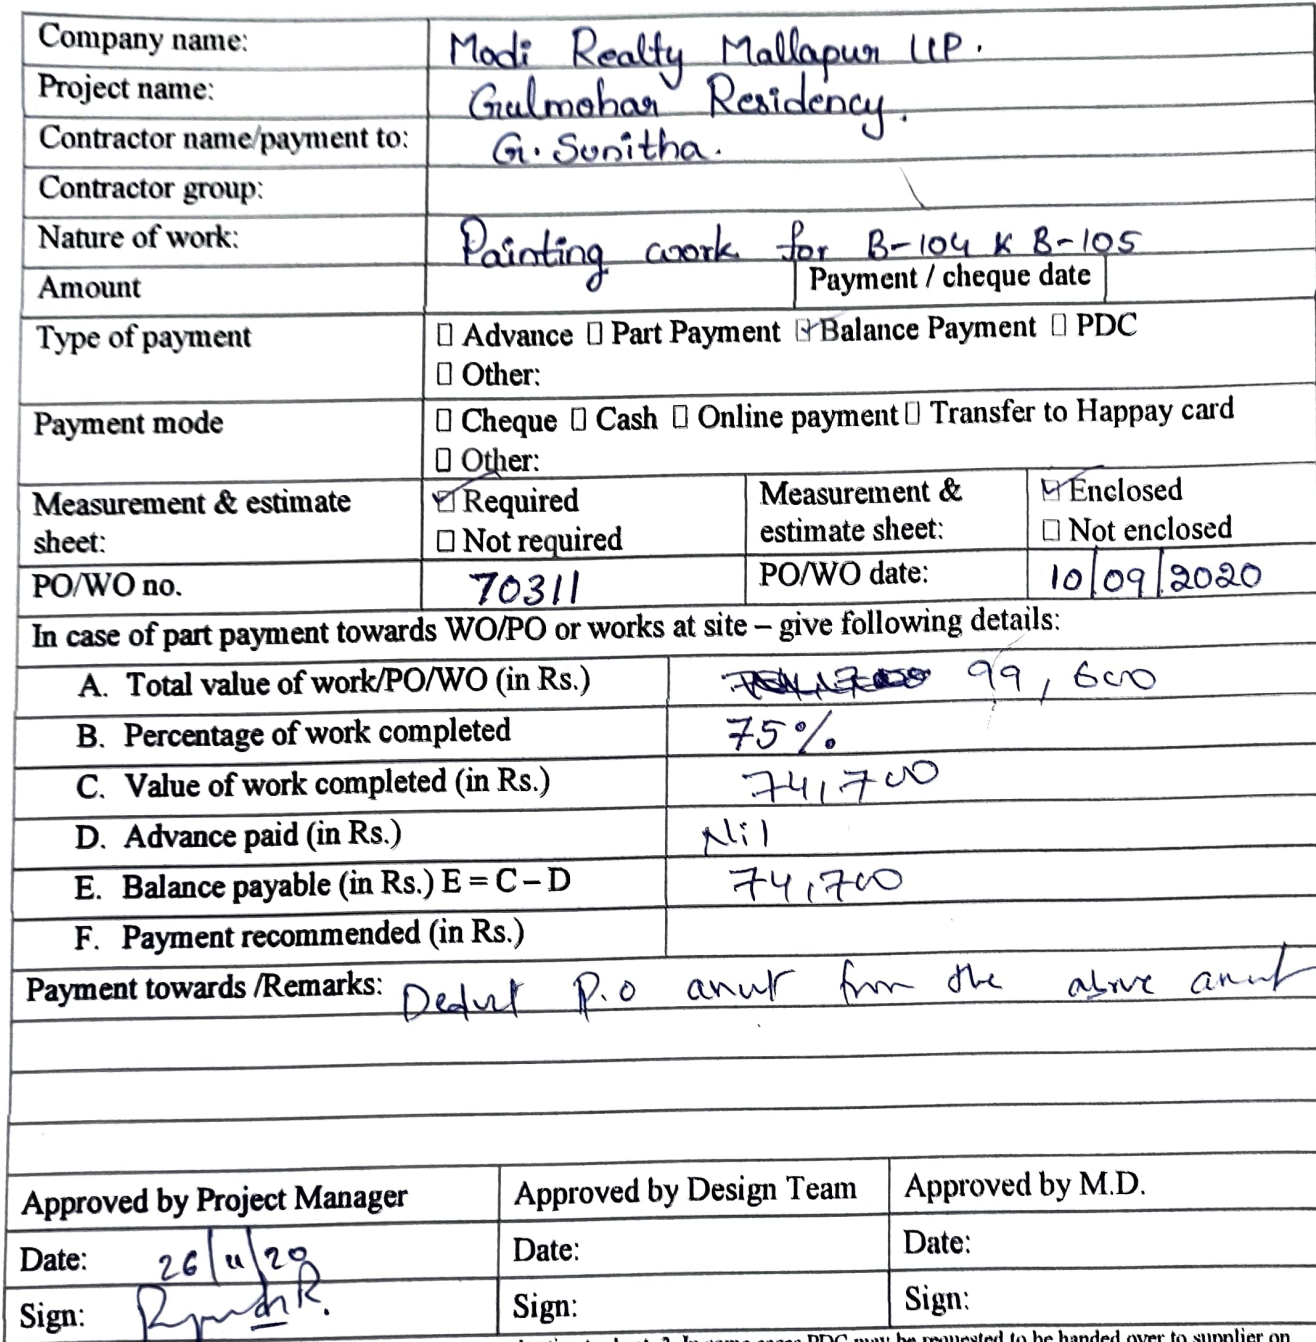 Company name: Modi Realty Mallapur LLP.
Project name: Gulmohar Residency.
Contractor name/payment to: G. Sunitha.
Contractor group:
Nature of work: Painting work for B-104 & B-105
Amount Payment / cheque date
Type of payment ☐ Advance ☐ Part Payment ☑ Balance Payment ☐ PDC
☐ Other:
Payment mode ☐ Cheque ☐ Cash ☐ Online payment ☐ Transfer to Happay card
☐ Other:
Measurement & estimate ☑ Required Measurement & ☑ Enclosed
sheet: ☐ Not required estimate sheet: ☐ Not enclosed
PO/WO no. 70311 PO/WO date: 10/09/2020
In case of part payment towards WO/PO or works at site – give following details:
A. Total value of work/PO/WO (in Rs.) 99,600
B. Percentage of work completed 75%
C. Value of work completed (in Rs.) 74,700
D. Advance paid (in Rs.) Nil
E. Balance payable (in Rs.) E = C – D 74,700
F. Payment recommended (in Rs.)
Payment towards /Remarks: Deduct P.O amut from the above amut
Approved by Project Manager Approved by Design Team Approved by M.D.
Date: 26/11/20 Date: Date:
Sign: Sign: Sign:
PDC may be requested to be handed over to supplier on